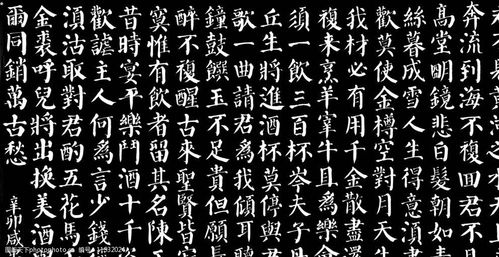 奔流到海不複回君不
高堂明鏡悲白髮朝如
絲暮成雪人生得意須
歡莫使金樽空對月天
我材必有用千金散盡還
複來烹羊宰牛且為樂
須一飲三百杯岑夫子
丘生將進酒杯莫停與君
歌一曲請君為我傾耳聽
鐘鼓饌玉不足貴但願
醉不複醒古來聖賢皆
寞惟有飲者留其名陳王
昔時宴平樂鬥酒十千
歡謔主人何為言少錢
須沽取對君酌五花馬
金裘呼兒將出換美酒
爾同銷萬古愁
辛卯咸